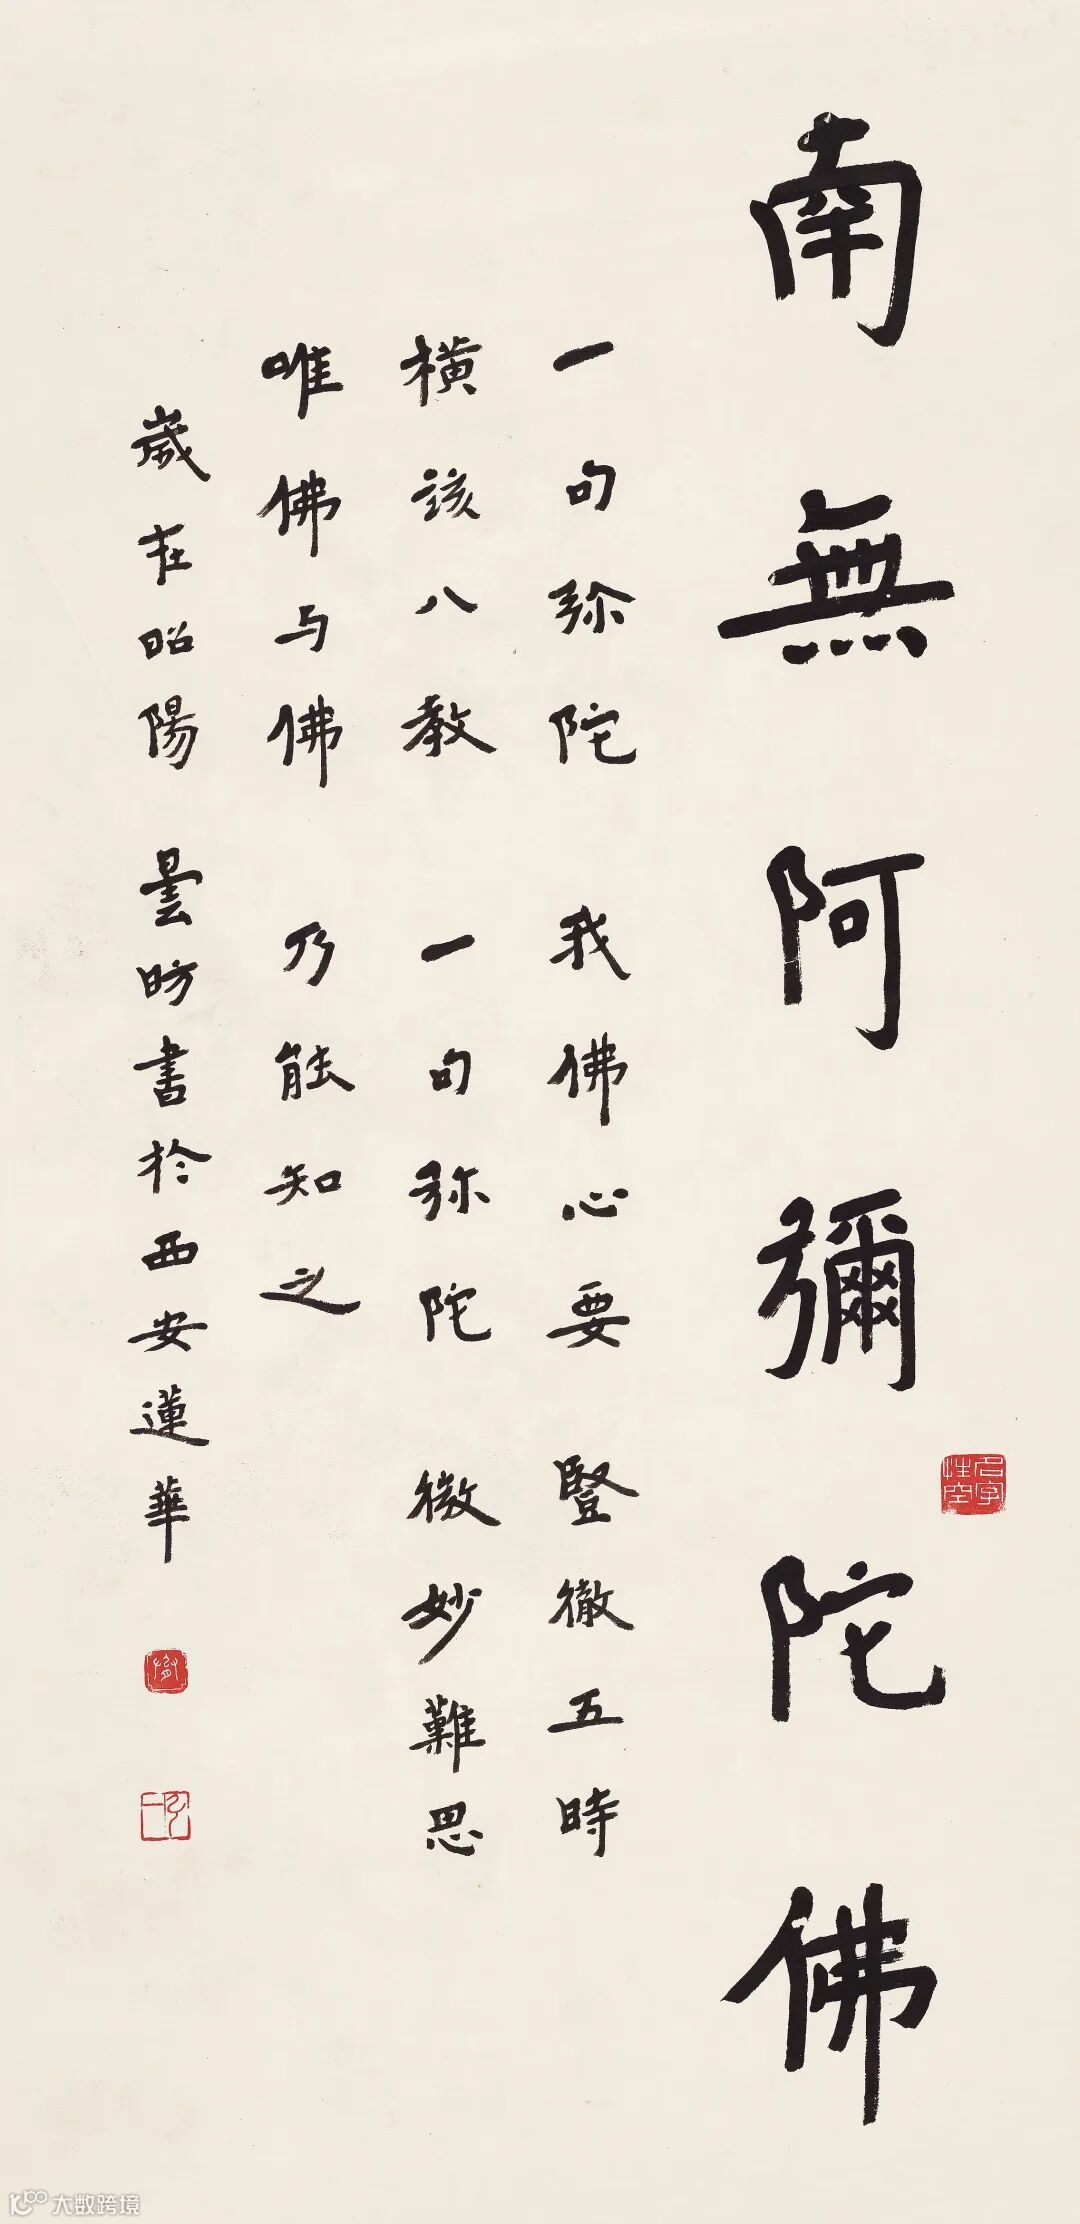 南無阿彌陀佛
一句弥陀 我佛心要 豎徹五時
橫該八教 一句弥陀 微妙難思
唯佛与佛 乃能知之
歲在昭陽 曇昉書於西安蓮華
名字性空
大数跨境